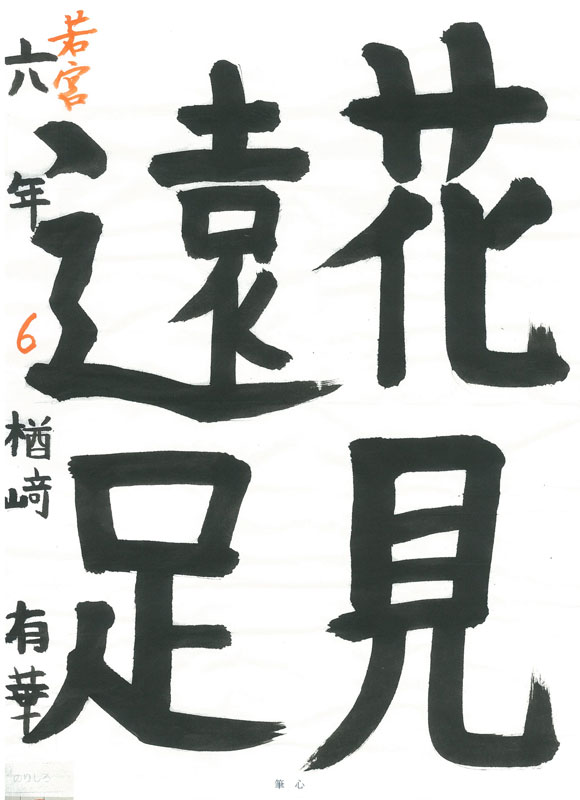 花見
遠足
若宮
六年 6 楢﨑 有華
筆心